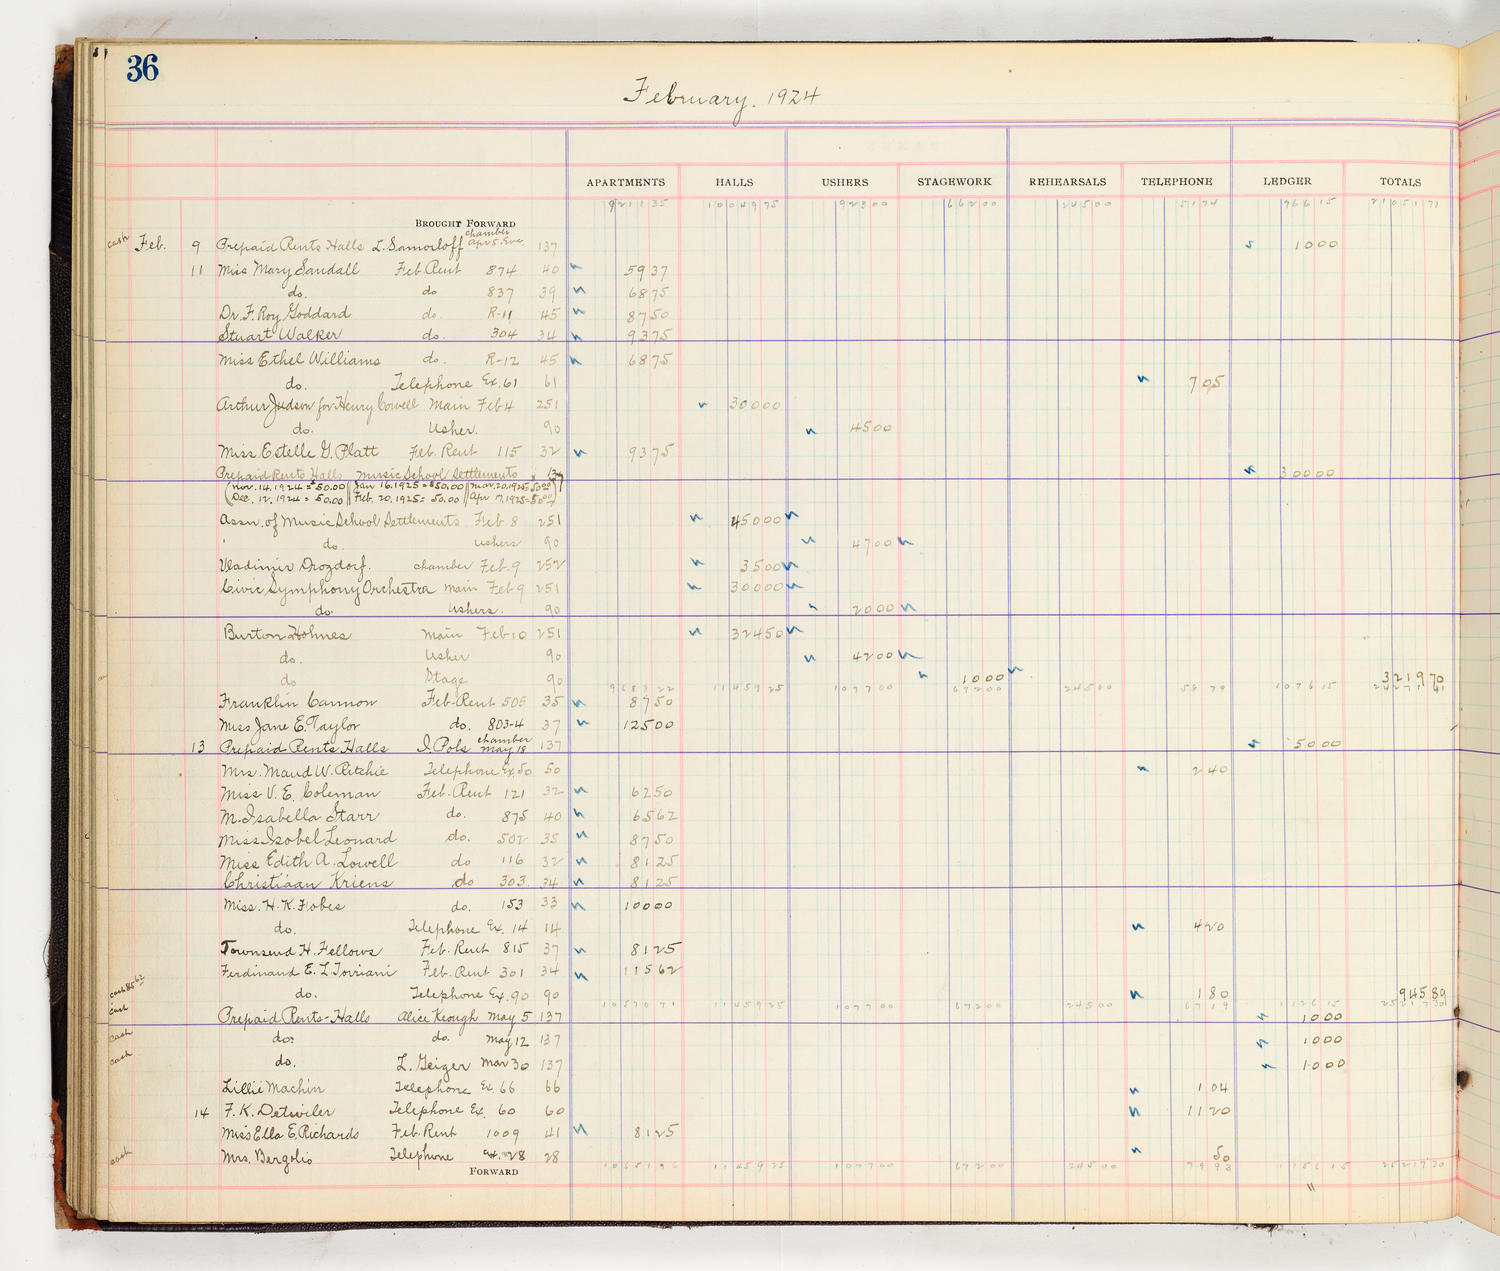 36
February. 1924
APARTMENTS HALLS USHERS STAGEWORK REHEARSALS TELEPHONE LEDGER TOTALS
BROUGHT FORWARD 921135 1004975 92300 66200 24500 5174 96615
cash Feb. 9 Prepaid Rents Halls L. Samoiloff chamber Apr 5. Eve. 137 1000
11 Miss Mary Sandall Feb. Rent 874 40 5937
do. do 837 39 6875
Dr. F. Roy Goddard do. R-11 45 8750
Stuart Walker do. 304 34 9375
Miss Ethel Williams do. R-12 45 6875
do. Telephone Ex. 61 61 705
Arthur Judson for Henry Cowell Main Feb 4 251 30000
do. Usher. 90 4500
Miss. Estelle G. Platt Feb. Rent 115 32 9375
Prepaid Rents Halls Music School Settlements 137 30000
(Nov. 14, 1924 = $50.00 || Jan 16, 1925 = $50.00 || Mar. 20, 1925 50.00)
(Dec. 12, 1924 = 50.00 || Feb. 20, 1925 = 50.00 || Apr 17, 1925 = 50.00)
Assn. of Music School Settlements Feb. 8 251 45000
do. ushers 90 4700
Vladimir Drozdorf. chamber Feb. 9 252 3500
Civic Symphony Orchestra main Feb 9 251 30000
do. ushers. 90 2000
Burton Holmes Main Feb 10 251 32450
do. Usher 90 4200
do Stage 90 1000 321970
968322 1145925 107700 67200 24500 5879 107615 2427141
Franklin Cannon Feb-Rent 505 35 8750
Miss Jane E. Taylor do. 803-4 37 12500
13 Prepaid Rents Halls I. Pols chamber May 18 137 5000
Mrs. Maud W. Ritchie Telephone Ex. 50 50 240
Miss V. E. Coleman Feb. Rent 121 32 6250
M. Isabella Starr do. 875 40 6562
Miss Isobel Leonard do. 502 35 8750
Miss Edith A. Lowell do 116 32 8125
Christiaan Kriens do 303. 34 8125
Miss. H. K. Fobes do. 153 33 10000
do. Telephone Ex. 14 14 420
Townsend H. Fellows Feb. Rent 815 37 8125
Ferdinand E. L. Torriani Feb. Rent 301 34 11562
cash 85 62 do. Telephone Ex. 90 90 180 94589
1057071 1145925 107700 67200 24500 6719 112615
cash Prepaid Rents-Halls Alice Keough May 5 137 1000
cash do. do. May 12 137 1000
cash do. L. Geiger Mar 30 137 1000
Lillie Machin Telephone Ex. 66 66 104
14 F. K. Detwiler Telephone Ex. 60 60 1120
Miss Ella E. Richards Feb. Rent 1009 41 8125
cash Mrs. Bergolio Telephone ex. 28 28 50
FORWARD 1065196 1145925 107700 67200 24500 7993 115615 2521730